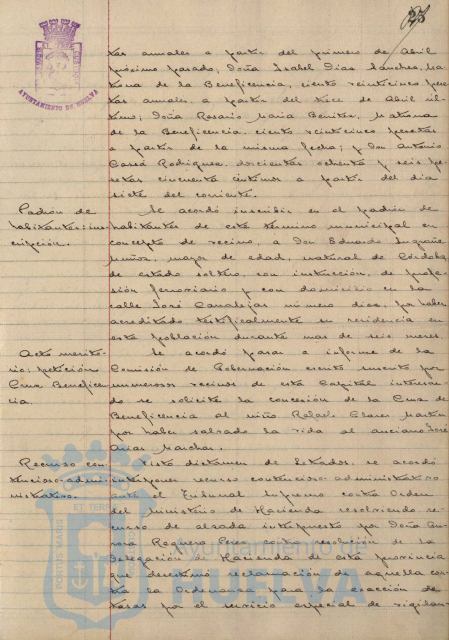 tas anuales a partir del primero de Abril
próximo pasado; Doña Isabel Dias Sanchez, Ma-
trona de la Beneficencia, ciento veinticinco pese-
tas anuales, a partir del trece de Abril úl-
timo; Doña Rosario Maria Benitez, Matrona
de la Beneficencia, ciento veinticinco pesetas
a partir de la misma fecha; y Don Antonio
Rodriguez, doscientas ochenta y seis pe-
setas cincuenta céntimos a partir del dia
siete del corriente.
Padrón de
habitantes: ins-
cripción.
Se acordó inscribir en el padrón de
habitantes de este término municipal en
concepto de vecino, a Don Eduardo
Muñoz, mayor de edad, natural de Córdoba,
de estado soltero, con instrucción, de profe-
sión ferroviario y con domicilio en la
calle José Canalejas número dies, por haber
acreditado testificalmente su residencia en
esta población durante mas de seis meses.
Acto merito-
rio: petición
Cruz Beneficen-
cia.
Se acordó pasar a informe de la
Comisión de Gobernación escrito suscrito por
numerosos vecinos de esta Capital interesan-
do se solicite la concesión de la Cruz de
Beneficencia al niño Rafael Martin
por haber salvado la vida al anciano José
Arias
Recurso con-
tencioso-admi-
nistrativo.
Visto dictamen de Letrados, se acordó
interponer recurso contencioso-administrativo
ante el Tribunal Supremo contra Orden
del Ministerio de Hacienda resolviendo re-
curso de alzada interpuesto por Doña Au-
rora Requero Peres contra resolución de la
Delegación de Hacienda de esta provincia
que desestimó reclamación de aquella con-
tra la Ordenanza para la exacción de
tasas por el servicio especial de vigilan-
AYUNTAMIENTO DE HUELVA
Ayuntamiento de
HUELVA